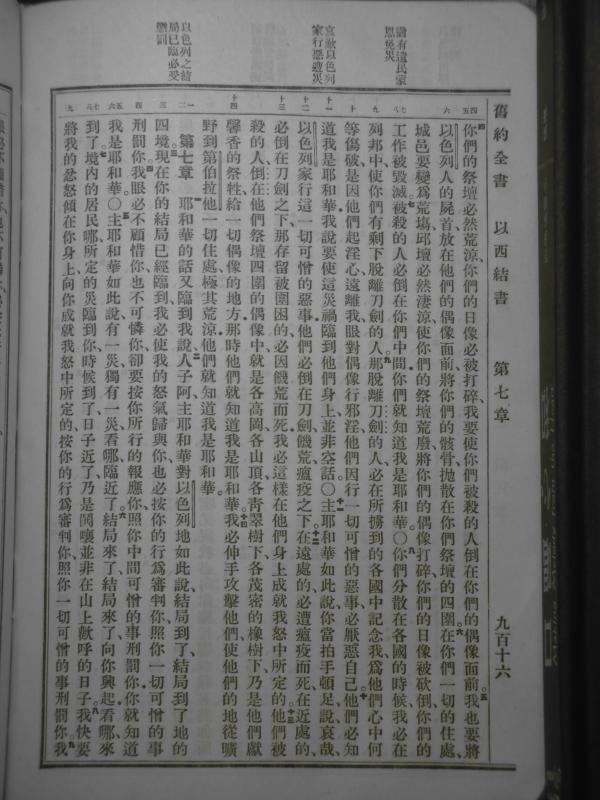 舊約全書 以西結書 第七章 九百十六
猶有遺民蒙恩免災
哀歎以色列家行惡遭災
以色列之結局已臨必受懲罰
你們的祭壇必然荒涼你們的日像必被打碎我要使你們被殺的人倒在你們的偶像面前我也要將
以色列人的屍首放在他們的偶像面前將你們的骸骨拋散在你們祭壇的四圍在你們一切的住處
城邑要變為荒場邱壇必然淒涼使你們的祭壇荒廢將你們的偶像打碎你們的日像被砍倒你們的
工作被毀滅被殺的人必倒在你們中間你們就知道我是耶和華〇你們分散在各國的時候我必在
列邦中使你們有剩下脫離刀劍的人那脫離刀劍的人必在所擄到的各國中記念我為他們心中何
等傷破是因他們起淫心遠離我眼對偶像行邪淫他們因行一切可憎的惡事必厭惡自己他們必知
道我是耶和華我說要使這災禍臨到他們身上並非空話〇主耶和華如此說你當拍手頓足說哀哉
以色列家行這一切可憎的惡事他們必倒在刀劍饑荒瘟疫之下在遠處的必遭瘟疫而死在近處的
必倒在刀劍之下那存留被圍困的必因饑荒而死我必這樣在他們身上成就我怒中所定的他們被
殺的人倒在他們祭壇四圍的偶像中就是各高岡各山頂各青翠樹下各茂密的橡樹下乃是他們獻
馨香的祭牲給一切偶像的地方那時他們就知道我是耶和華我必伸手攻擊他們使他們的地從曠
野到第伯拉他一切住處極其荒涼他們就知道我是耶和華
第七章 耶和華的話又臨到我說人子阿主耶和華對以色列地如此說結局到了結局到了地的
四境現在你的結局已經臨到我必使我的怒氣歸與你也必按你的行為審判你照你一切可憎的事
刑罰你我眼必不顧惜你也不可憐你卻要按你所行的報應你照你中間可憎的事刑罰你你就知道
我是耶和華〇主耶和華如此說有一災獨有一災看哪臨近了結局來了結局來了向你興起看哪來
到了境內的居民哪所定的災臨到你時候到了日子近了乃是鬨嚷並非在山上歡呼的日子我快要
將我的忿怒傾在你身上向你成就我怒中所定的按你的行為審判你照你一切可憎的事刑罰你我